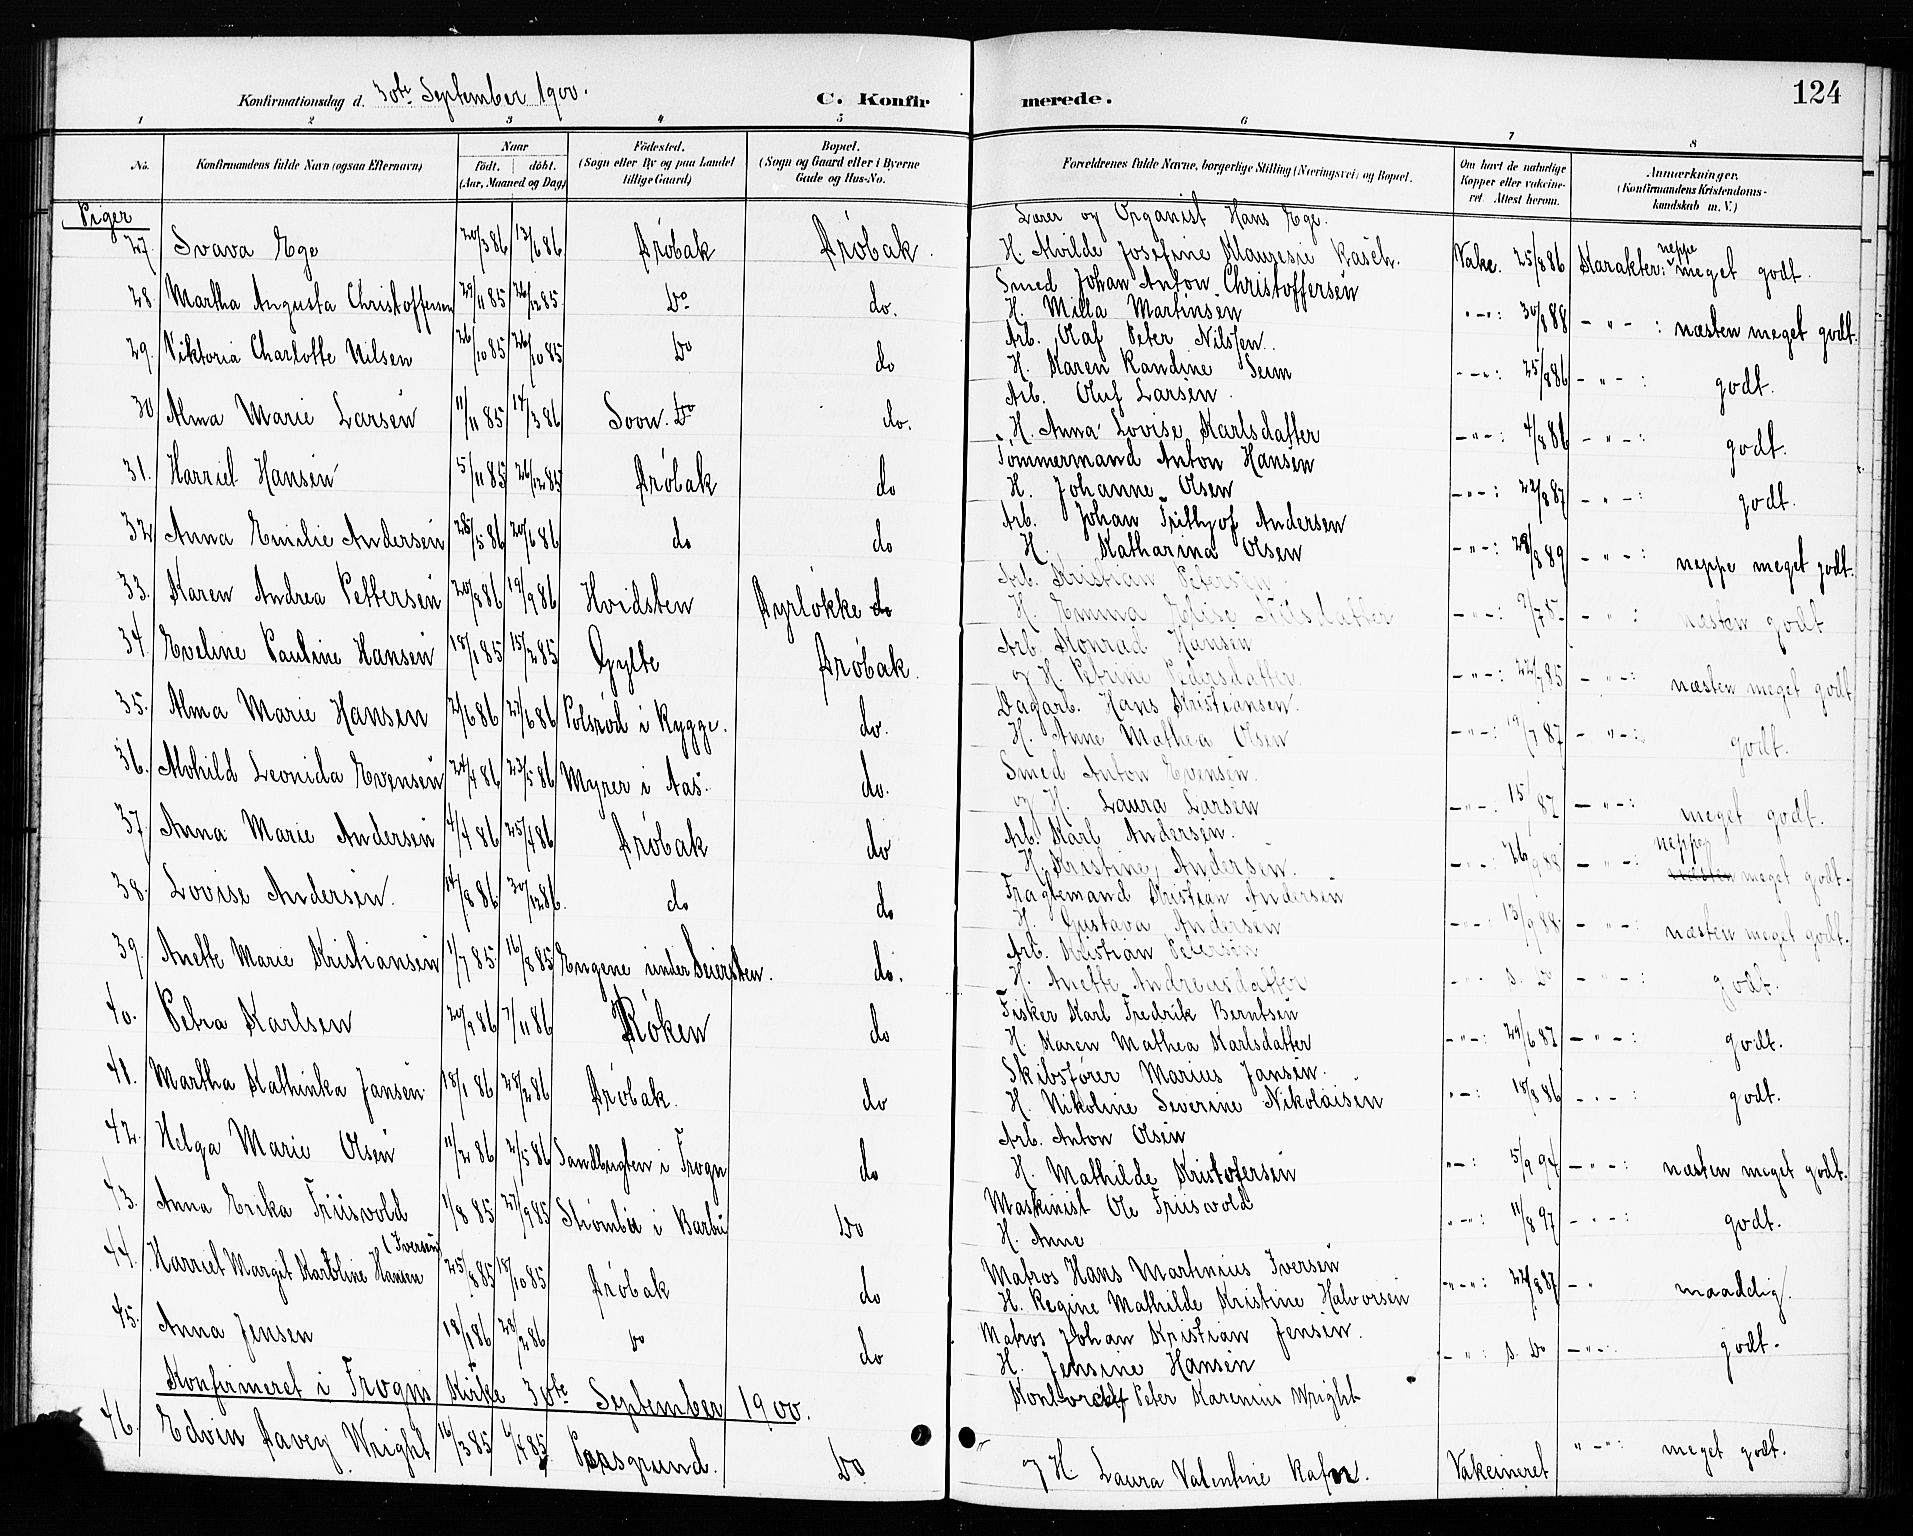 Konfirmationsdag d. 30te September 1900. C. Konfirmerede. 124
1 2 3 4 5 6 7 8
No. Konfirmandens fulde Navn (ogsaa Efternavn) Naar født. døbt. (Aar, Maaned og Dag) Fødested. (Sogn eller By og paa Landet tillige Gaard) Bopæl. (Sogn og Gaard eller i Byerne Gade og Hus-No. Forældrenes fulde Navne, borgerlige Stilling (Næringsvei) og Bopæl. Om havt de naturlige Kopper eller vakcineret. Attest herom. Anmærkninger. (Konfirmandens Kristendomskundskab m. V.)
Piger
Lærer og Organist Hans Ege.
27. Svava Ege 20/3 86 13/6 86 Drøbak Drøbak. H. Alvilde Josefine Klauresie Rasch. Vakc. 25/8 86 Karakter: neppe meget godt.
Smed Johan Anton Christoffersen
28. Martha Augusta Christoffersen 29/11 85 26/12 85 Do do. H. Milla Martinsen -"-: 30/8 88 -"-: næsten meget godt.
Arb. Olaf Peter Nilssen.
29. Viktoria Charlotte Nilsen 26/10 85 26/10 85 Do do H. Karen Randine Seim -"-: 25/8 86 -"-: godt.
Arb. Oluf Larsen.
30 Alma Marie Larsen 11/11 85 14/3 86 Sovn. Do do. H. Anna Lovise Karlsdatter -"-: 4/8 86 -"-: godt.
Tømmermand Anton Hansen
31. Harriet Hansen 5/11 85 26/12 85 Drøbak do H. Johanne Olsen -"-: 22/8 87 -"-: godt.
Arb. Johan Frithjof Andersen
32 Anna Emilie Andersen 28/5 86 20/6 86 do do H. Katharina Olsen -"-: 28/8 89 -"-: neppe meget godt.
Arb. Kristian Petersen
33. Karen Andrea Pettersen 20/8 86 19/9 86 Hvidsten Dyrløkke do H. Emma Elise Nilsdatter -"-: næsten godt
Arb. Konrad Hansen
34. Eveline Pauline Hansen 18/1 85 15/2 85 Gylte Drøbak. og H. Petrine Pedersdatter. -"-: -"-: næsten meget godt
Dagarb. Hans Kristiansen.
35. Alma Marie Hansen 2/6 86 27/6 86 Polsrød i Rygge. do. H. Anne Mathea Olsen -"-: 19/7 87 -"-: godt.
Smed Anton Evensen.
36. Alvhild Leonida Evensen 24/4 86 23/5 86 Myrer i Aas. do. og H. Laura Larsen -"-: -"-: meget godt.
Arb. Karl Andersen.
37. Anna Marie Andersen 4/4 86 25/4 86 Drøbak do H. Kristine Andersen. -"-: 26/9 88 -"-: neppe næsten meget godt.
Fragtemand Kristian Andersen
38. Lovise Andersen. 14/8 86 30/12 86. do do H. Gustava Andersen -"-: 13/9 88 -"-: næsten meget godt.
Arb. Kristian Petersen
39. Anette Marie Kristiansen 1/7 85 16/8 85 Engene under Seiersten. do. H. Anette Andreasdatter -"- s. Do -"-: godt.
Fisker Karl Fredrik Berntsen
40. Petra Karlsen 20/9 86 7/11 86 Røken do H. Karen Mathea Karlsdatter -"-: 29/6 87 -"-: godt.
Skibsfører Marius Jansen.
41. Martha Kathinka Jansen 18/1 86 28/2 86 Drøbak. do H. Nikoline Severine Nikolaisen "-: 18/8 86 -"-: godt.
Arb. Anton Olsen
42. Helga Marie Olsen 11/2 86 2/5 86 Sandbugten i Frogn do H. Mathilde Kristofersen "-: 5/9 94 -"-: næsten meget godt.
Maskinist Ole Friisvold
43. Anna Erika Friisvold 1/8 85 27/9 85 Strømbu i Barbu Do H. Anne "-": 11/8 97 -"-: godt.
Matros Hans Martinius Iversen
44. Harriet Margit Karoline Hansen (Iversen 25/8 85 18/10 85 Drøbak do H. Regine Mathilde Kristine Halvorsen "-": 22/8 87 -" maadelig.
Matros Johan Kristian Jensen.
45. Anna Jensen 18/1 86 28/2 86 Do do H. Jensine Hansen -": s. Do -"-: godt.
Konfirmeret i Frogns Kirke 30te September 1900. Kontorchef Peter Karenius Wright
46. Edvin Davey Wright 16/3 85 Porsgrund. Do og H Laura Valentine Rafn. Vakcineret "-": meget godt.